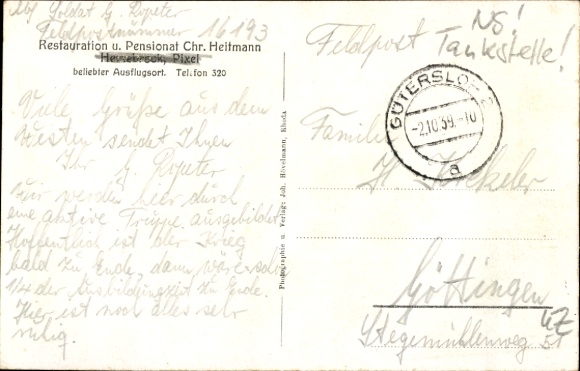 Abs. Soldat H. Ropeter
Feldpostnummer 16193
Restauration u. Pensionat Chr. Heitmann
beliebter Ausflugsort. Telefon 320
Viele Grüße aus dem
Westen sendet Ihnen
Ihr H. Ropeter
Wir werden hier durch
eine aktive Truppe ausgebildet
Hoffentlich ist der Krieg
bald zu Ende, dann wäre schon
1/4 der Ausbildungszeit zu Ende.
Hier ist noch alles sehr
ruhig.
Photographie u. Verlag: Joh. Hövelmann, Rheda
Feldpost
NS!
Tankstelle!
GÜTERSLOH
-2.10.39.-10
a
Familie
H.
Göttingen
Stegemühlenweg 51